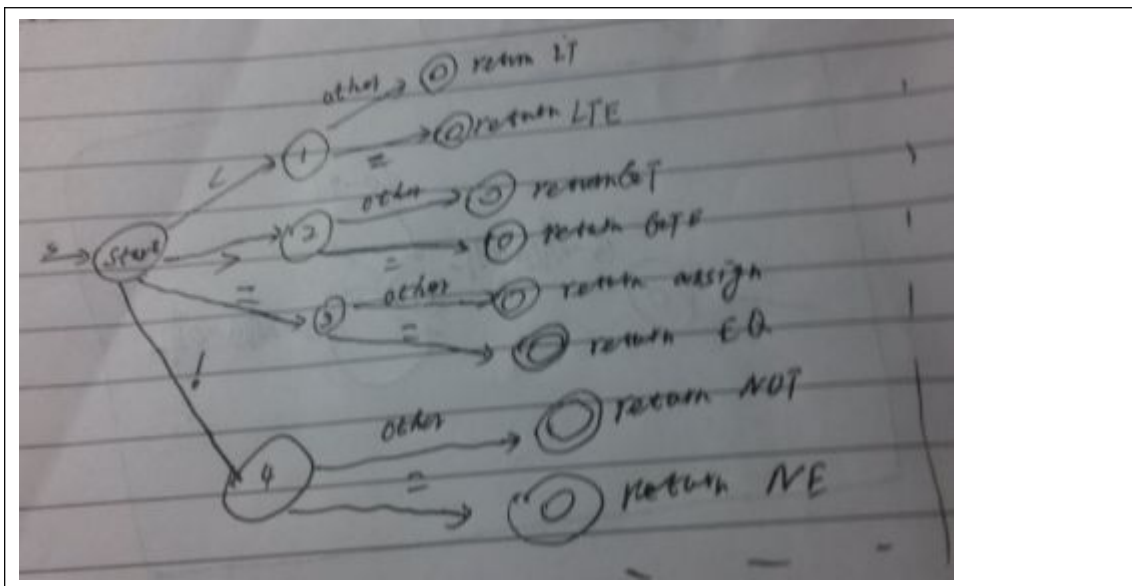 other return LT
< 1 = return LTE
other return GT
start > 2 = return GTE
= 3 other return assign
= return EQ
! other return NOT
4 = return NE